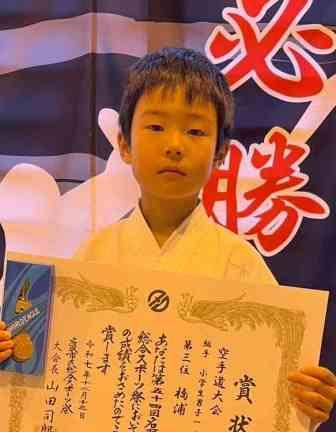 必
勝
賞状
空手道大会
組手 小学生男子一
第三位 橋浦
あなたは第五十四回名
総合スポーツ祭において
の成績をおさめたのでこ
賞します
令和七年十
総合スポーツ祭
大会長 山田司